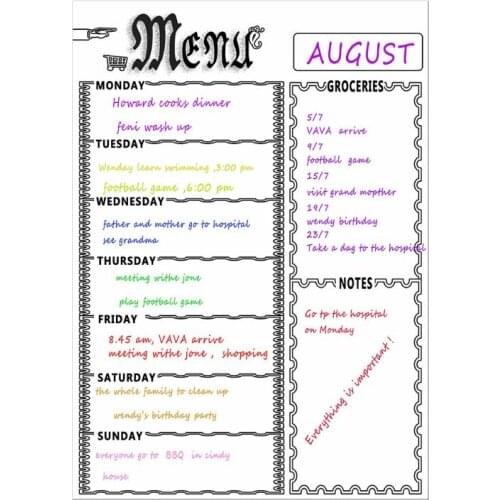 Menu
AUGUST
MONDAY
Howard cooks dinner
feni wash up
TUESDAY
Wenday learn swimming ,3:00 pm
football game ,6:00 pm
WEDNESDAY
father and mother go to hospital
see grandma
THURSDAY
meeting withe jone
play football game
FRIDAY
8.45 am, VAVA arrive
meeting withe jone , shopping
SATURDAY
the whole family to clean up
wendy's birthday party
SUNDAY
everyone go to BBQ in cindy
house
GROCERIES
5/7
VAVA arrive
9/7
football game
15/7
visit grand mopther
19/7
wendy birthday
23/7
Take a dag to the hospital
NOTES
Go tp the hospital
on Monday
Everything is important !